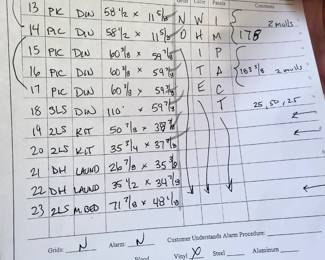 Grids Color Panels Comments
13 PIC DIN 58 1/2 x 11 5/8 N W I 2 mulls
14 PIC DIN 58 1/2 x 11 5/8 O H M 178
15 PIC DIN 60 3/8 x 59 7/8 I P
16 PIC DIN 60 3/8 x 59 7/8 T A 183 3/8 2 mulls
17 PIC DIN 60 3/8 x 59 7/8 E C
18 3LS DIN 110 x 59 7/8 T 25, 50, 25
19 2LS KIT 50 7/8 x 38 7/8
20 2LS KIT 35 3/4 x 37 7/8
21 DH LAUND 26 7/8 x 35 3/8
22 DH LAUND 35 1/2 x 34 7/8
23 2LS M.BED 71 7/8 x 48 1/8
Grids: N Alarm: N Customer Understands Alarm Procedure:
Wood Vinyl X Steel Aluminum